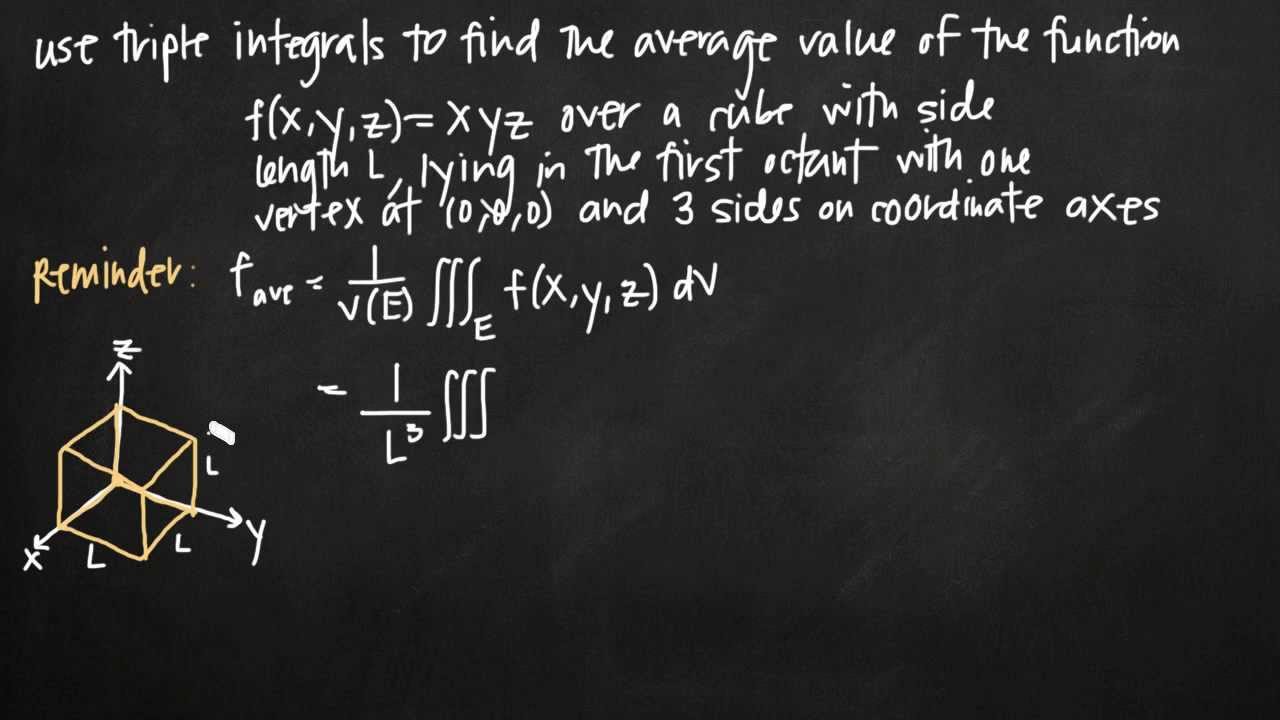 use triple integrals to find the average value of the function
f(x,y,z)=xyz over a cube with side
length L, lying in the first octant with one
vertex at (0,0,0) and 3 sides on coordinate axes
Reminder: f_ave = 1/V(E) ∭_E f(x,y,z) dV
= 1/L³ ∭
z
L
y
L
L
x